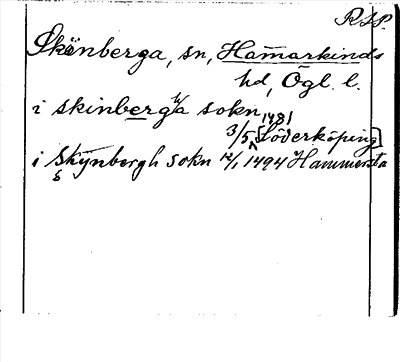 RSP.
Skönberga, sn, Hammarkinds
hd, Ögl. l.
i skinberga sokn 1481
3/5 [Söderköping]
i Skÿnbergh sokn 12/1 1494 Hammersta